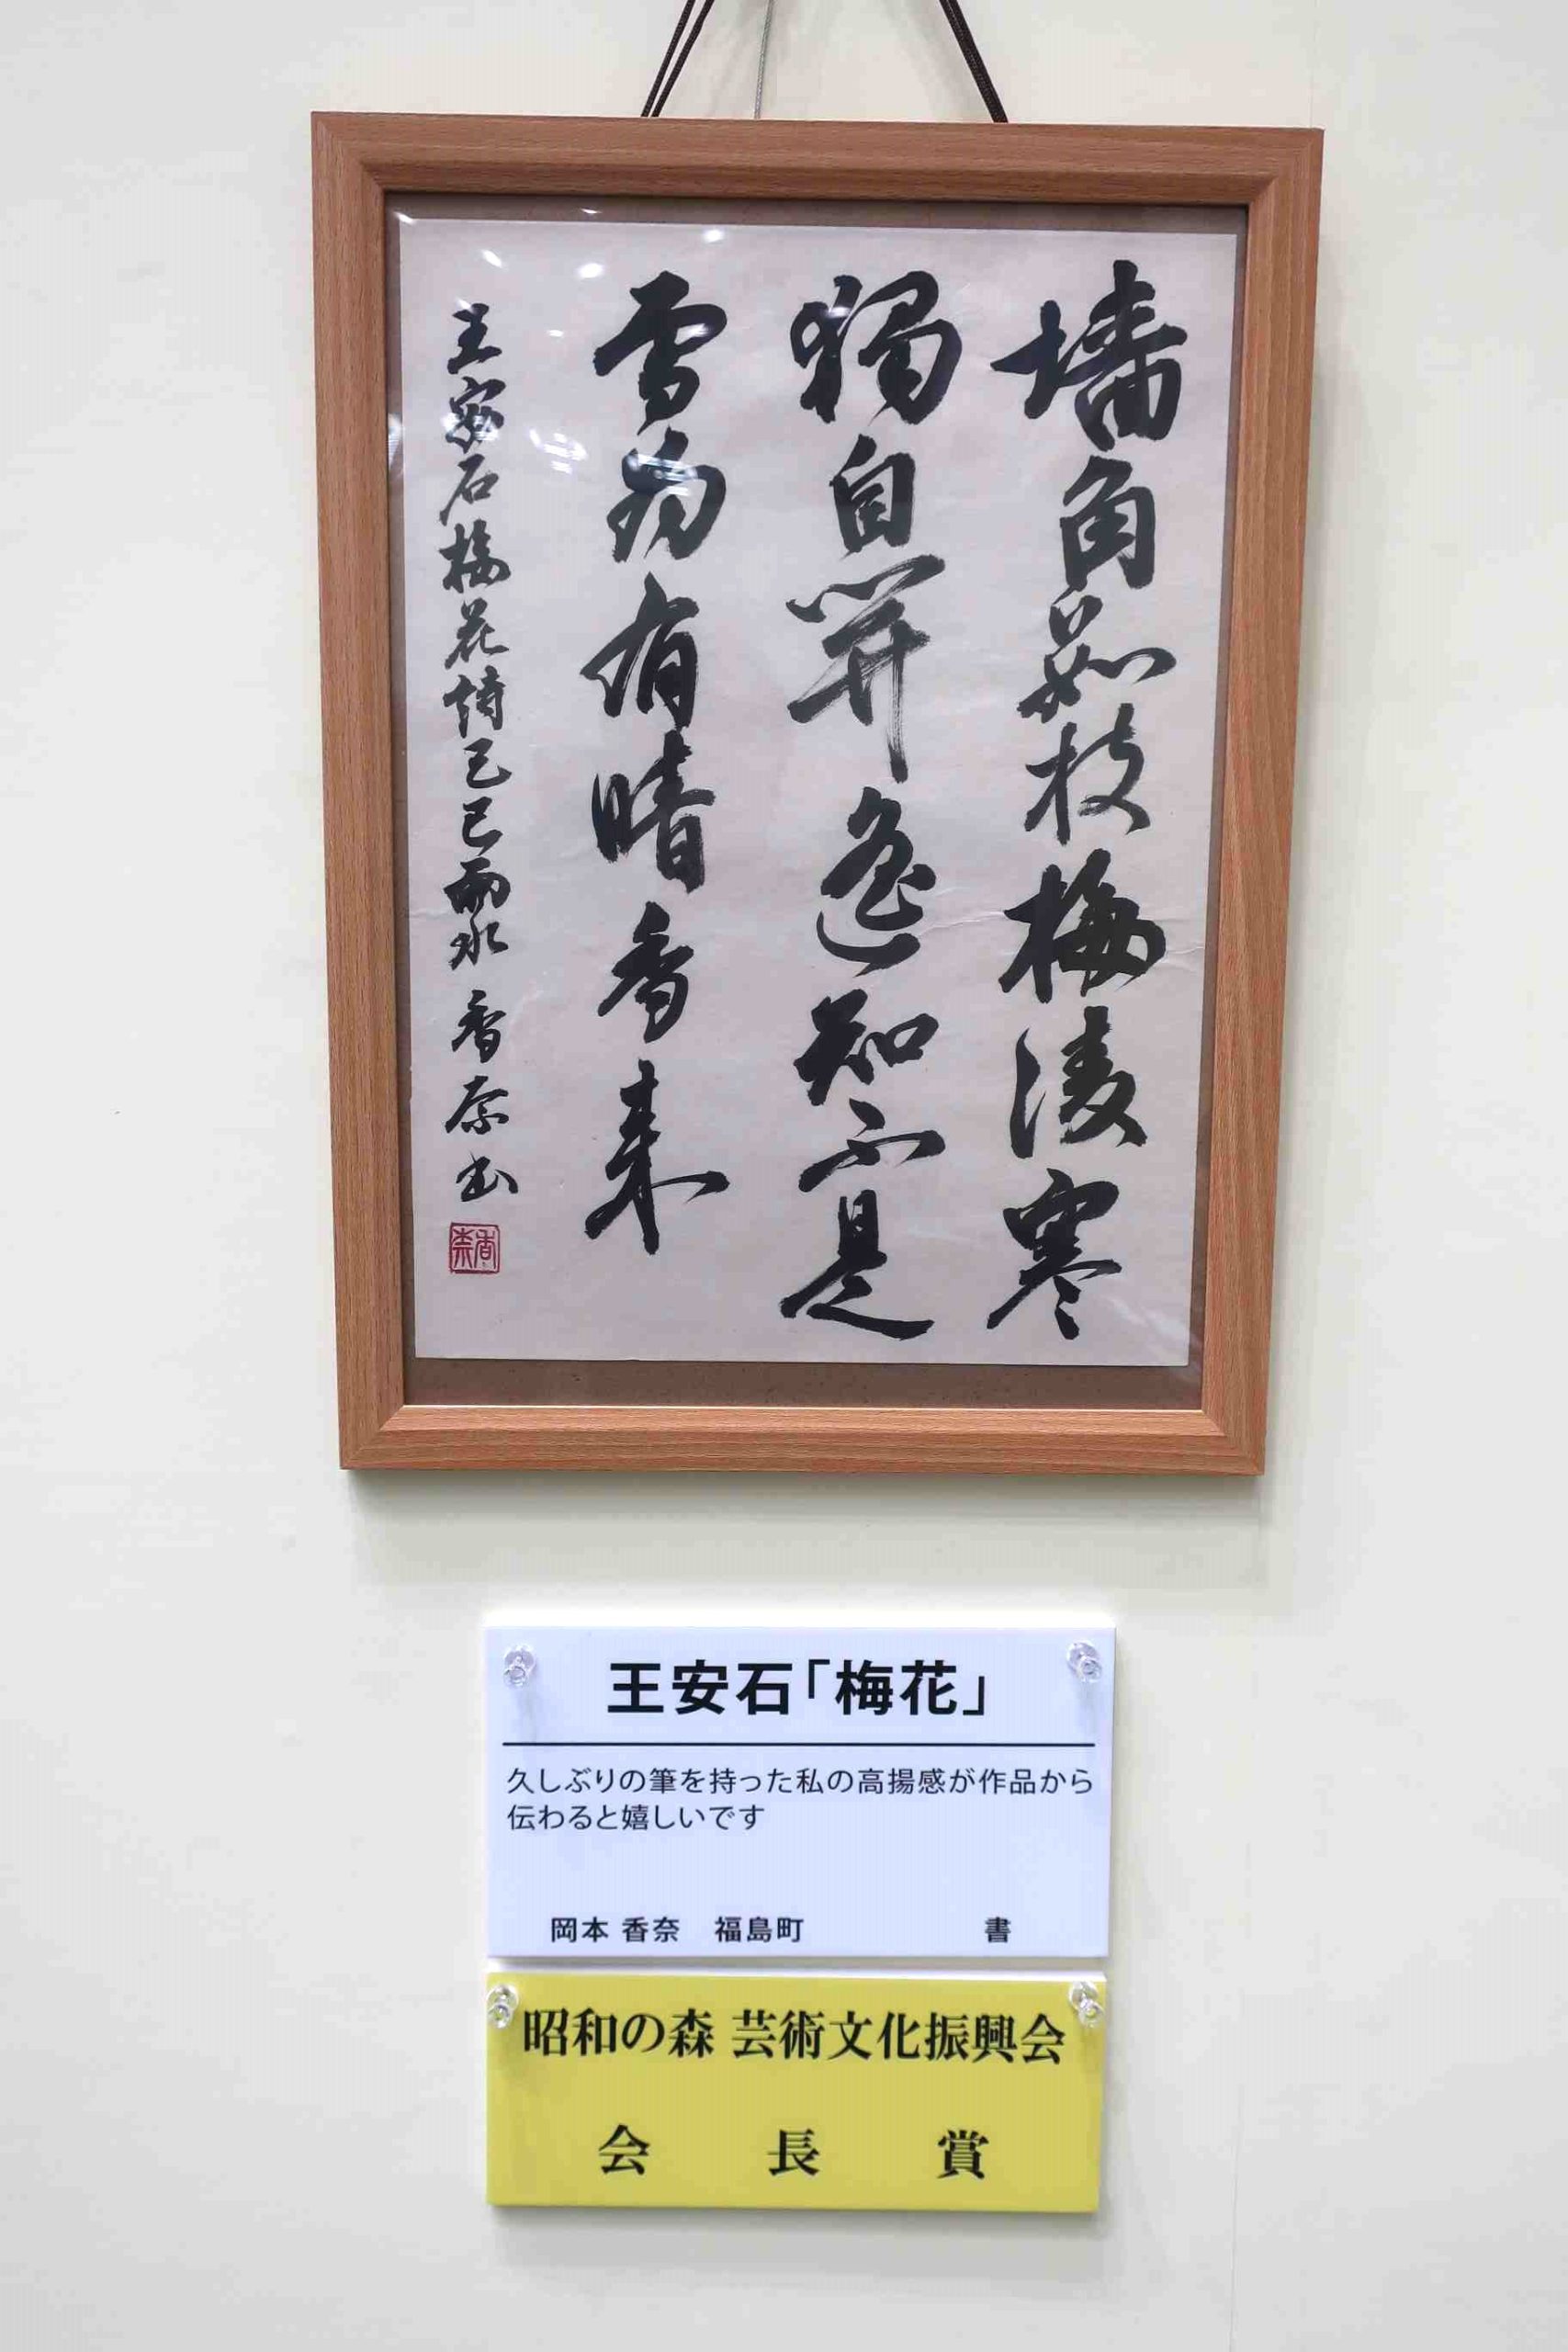 墙角數枝梅凌寒
獨自開遙知不是
雪為有暗香来
王安石梅花詩乙巳雨水 香奈书
香奈
王安石「梅花」
久しぶりの筆を持った私の高揚感が作品から
伝わると嬉しいです
岡本 香奈 福島町 書
昭和の森 芸術文化振興会
会 長 賞